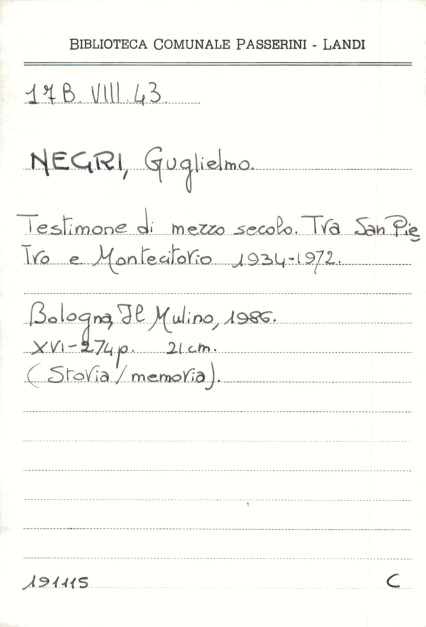 BIBLIOTECA COMUNALE PASSERINI - LANDI
17 B. VIII. 43.
NEGRI, Guglielmo.
Testimone di mezzo secolo. Tra San Pie
tro e Montecitorio 1934-1972.
Bologna, Il Mulino, 1986.
XVI-274 p. 21 cm.
(Storia / memoria).
191115 C